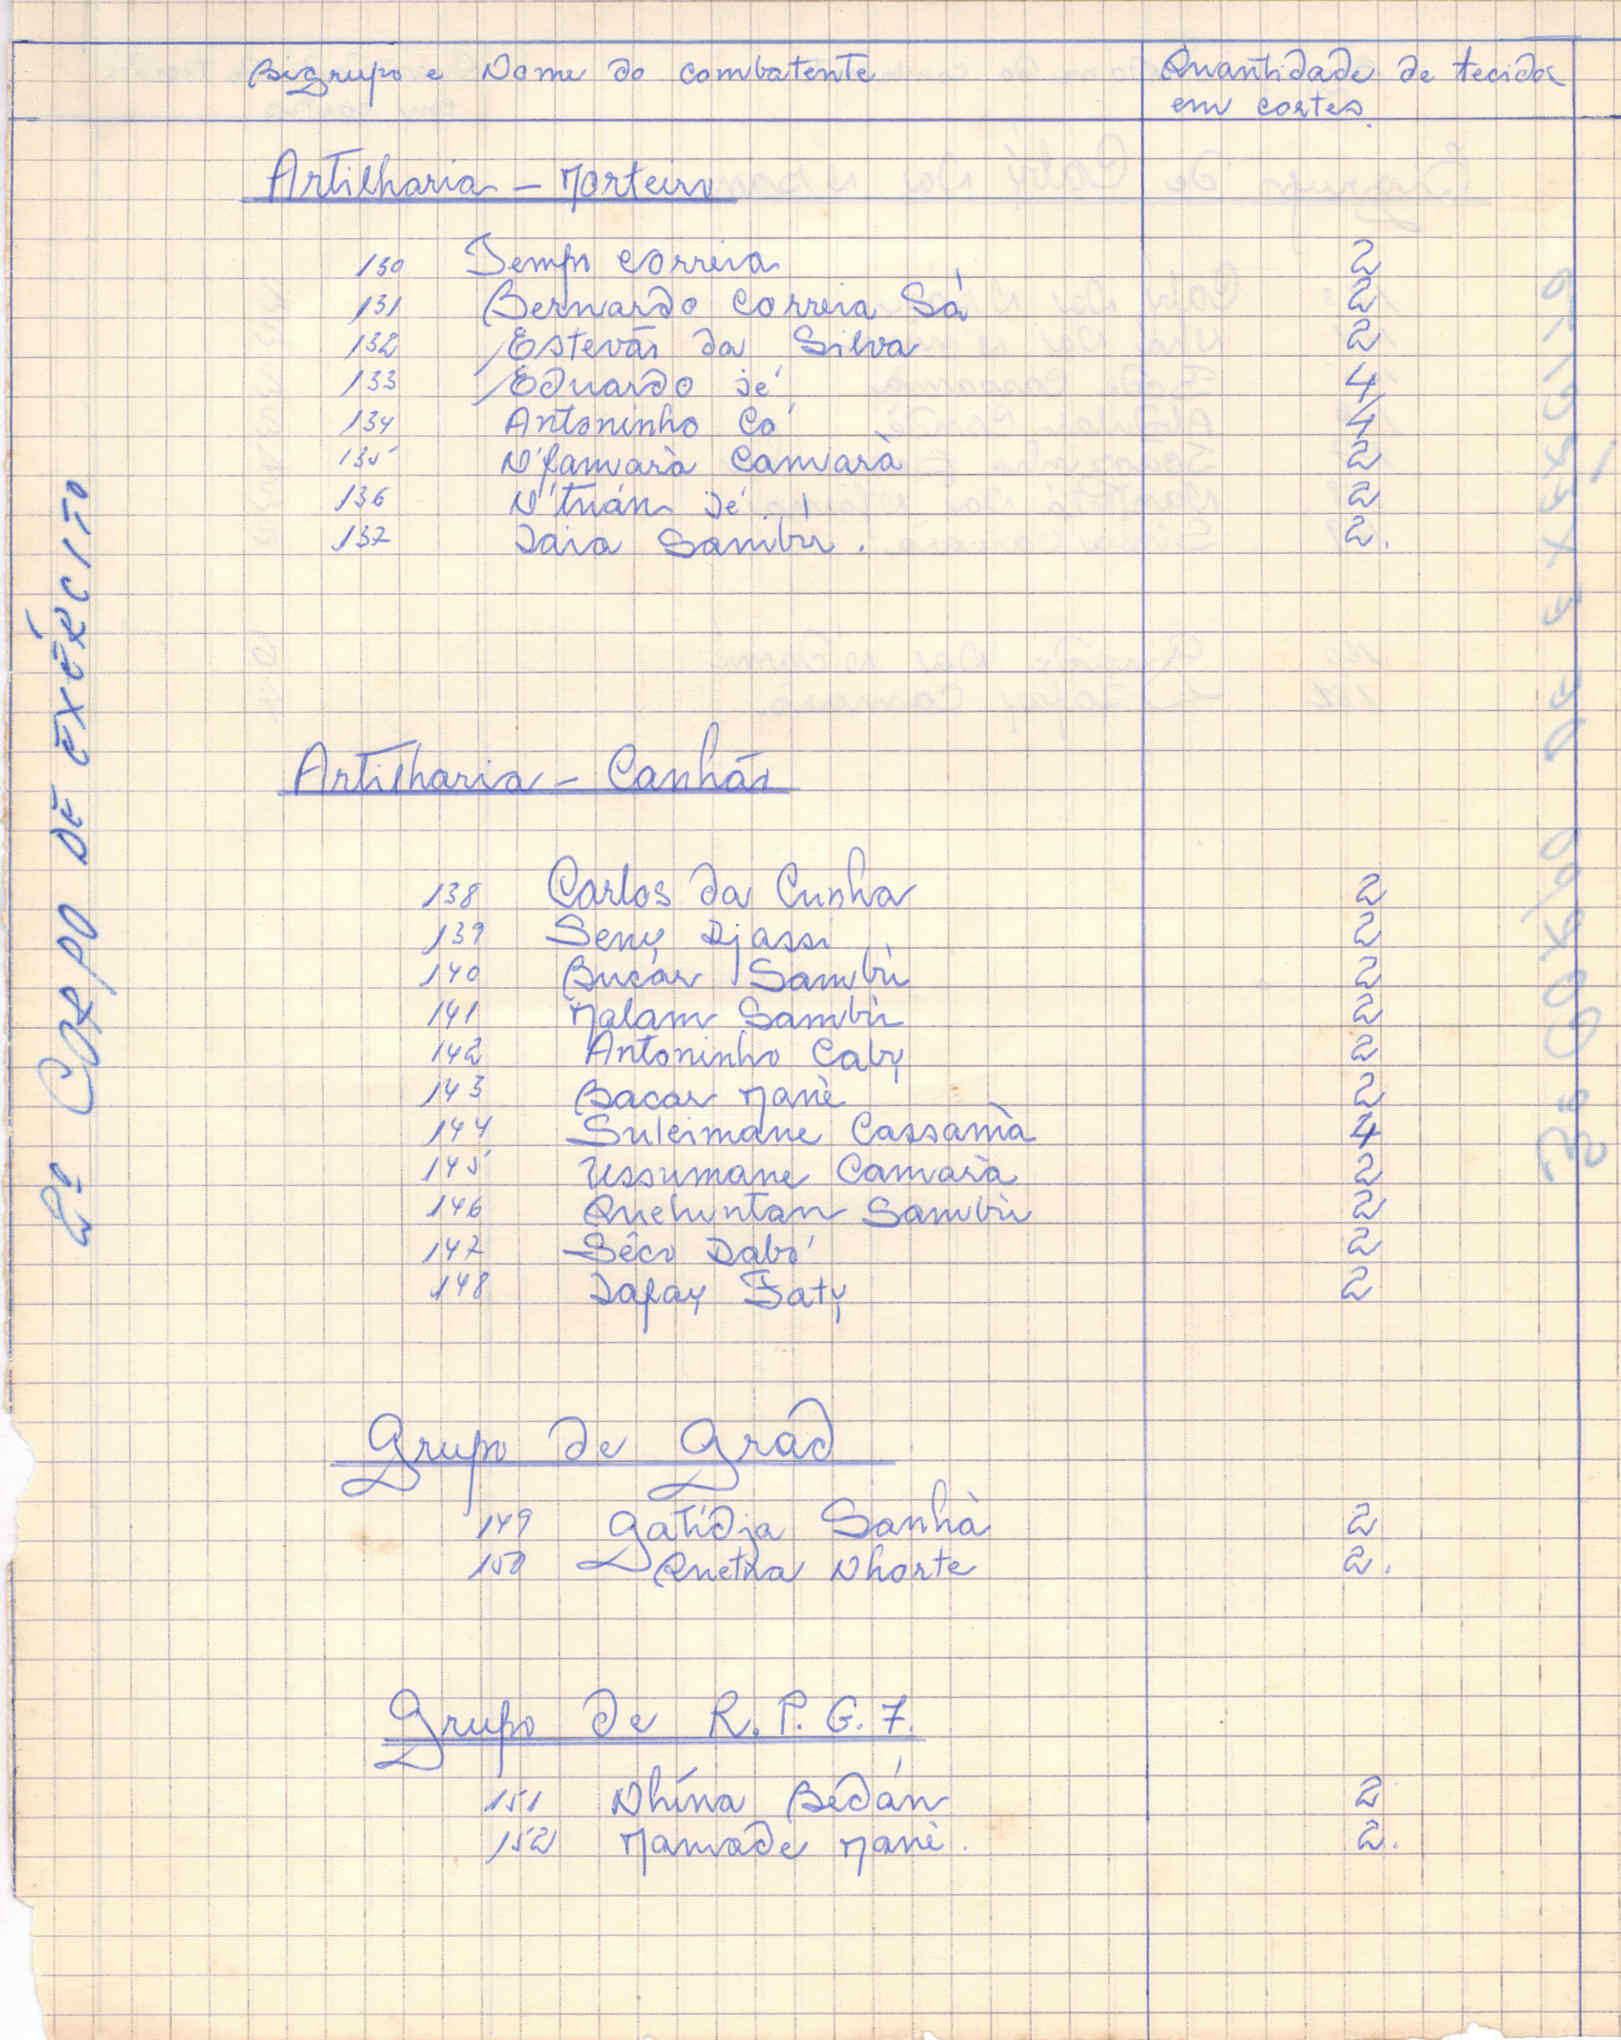 Bigrupo e Nome do combatente
Quantidade de tecidos
em cortes
Artilharia - Morteiro
130 Tempo Correia 2
131 Bernardo Correia Sá 2
132 Estevão da Silva 2
133 Eduardo Jé 4
134 Antoninho Có 4
135 N'famará Camará 2
136 N'tuán Jé 2
137 Jaia Sambú. 2.
Artilharia - Canhão
138 Carlos da Cunha 2
139 Seny Djassi 2
140 Bucár Sambú 2
141 Malam Sambú 2
142 Antoninho Caby 2
143 Bacar Mané 2
144 Suleimane Cassamà 4
145 Ussumane Camarà 2
146 Quehuntan Sambú 2
147 Sêco Dabó 2
148 Jafay Faty 2
Grupo de Grád
149 Gatídja Sanhà 2
150 Quetxa Nhorte 2.
Grupo de R.P.G.7.
151 Nhína Bedán 2
152 Mamade Mané. 2.
2º CORPO DE EXÉRCITO